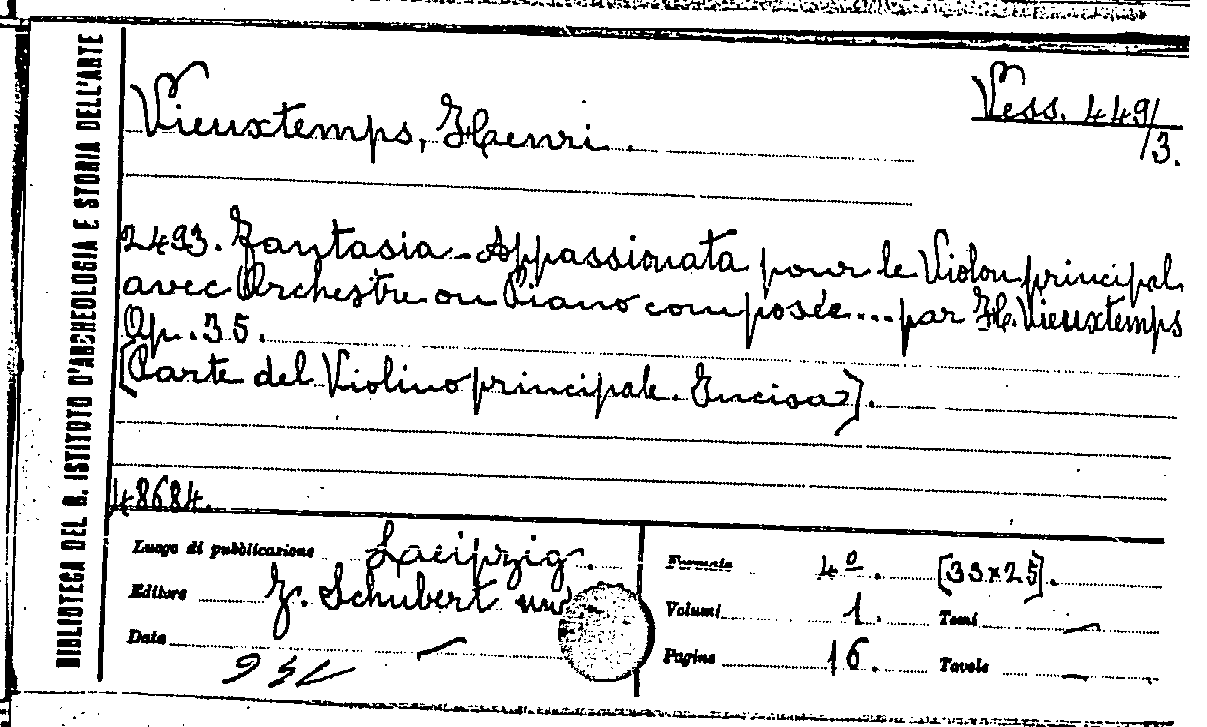 BIBLIOTECA DEL R. ISTITUTO D'ARCHEOLOGIA E STORIA DELL'ARTE
Vieuxtemps, Henri.
Vess. 449/3.
2493. Fantasia-Appassionata pour le Violon principal
avec Orchestre ou Piano composée... par H. Vieuxtemps
Op. 35.
[Parte del Violino principale. Incisa].
48684.
Luogo di pubblicazione Laeipzig.
Editore J. Schubert
Data —
Formato 4º. [33×25].
Volumi 1. Tomi —
Pagine 16. Tavole —